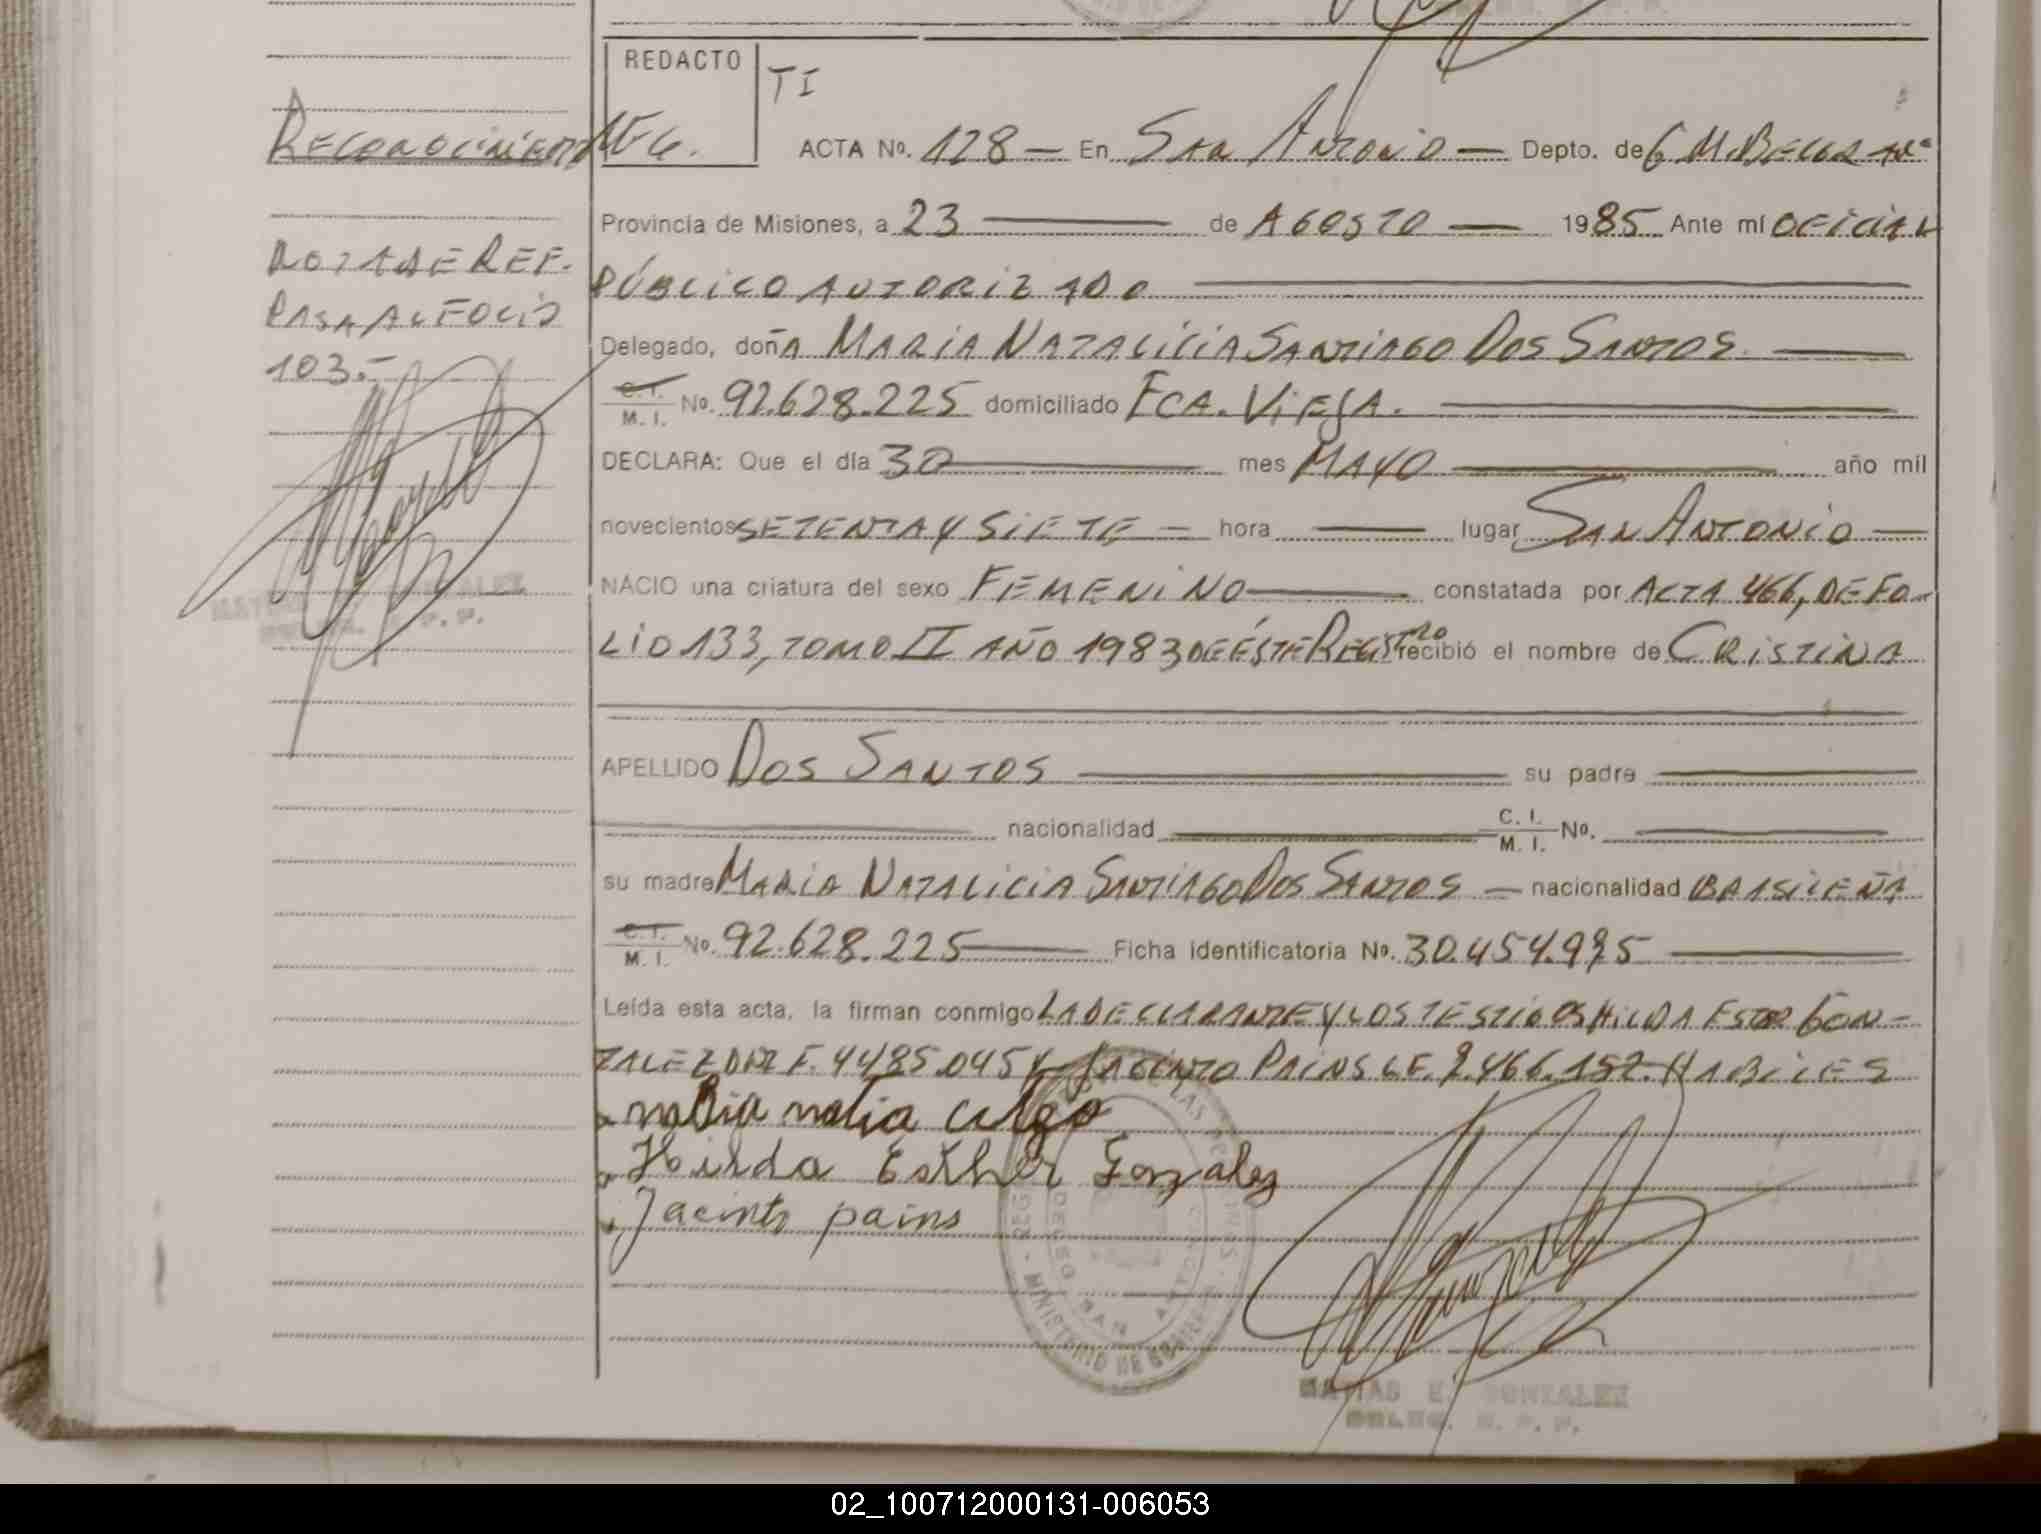 REDACTO
TI
RECONOCIMIENTO
ACTA Nº. 128 — En SAN ANTONIO — Depto. de G M. BELGRANO
Provincia de Misiones, a 23 — de AGOSTO — 1985 Ante mí OFICIAL
PÚBLICO AUTORIZADO
NOTA DE REF.
PASA AL FOLIO
103.-
Delegado, doñA MARIA NATALICIA SANTIAGO DOS SANTOS. —
C. I. M. I. Nº. 92.628.225 domiciliado FCA. VIEJA. —
DECLARA: Que el día 30 — mes MAYO — año mil
novecientos SETENTA Y SIETE — hora — lugar SAN ANTONIO —
NACIO una criatura del sexo FEMENINO — constatada por ACTA 466, DE FO-
LIO 133, TOMO II AÑO 1983 DE ÉSTE REGISTRO recibió el nombre de CRISTINA
APELLIDO DOS SANTOS — su padre —
— nacionalidad — C. I. M. I. Nº. —
su madre MARIA NATALICIA SANTIAGO DOS SANTOS — nacionalidad BRASILEÑA
C. I. M. I. Nº. 92.628.225 — Ficha identificatoria Nº. 30.454.975 —
Leída esta acta, la firman conmigo LA DECLARANTE Y LOS TESTIGOS HILDA ESTER GON-
ZALEZ DNI F. 4485.045 Y JACINTO PAINS L.E. 8.466.152. HABILES
Hilda Esther Gonzalez
Jacinto pains
MINISTERIO DE GOBIERNO
SAN ANTONIO
MATIAS E. GONZALEZ
DELEG. R. P. P.
02_100712000131-006053